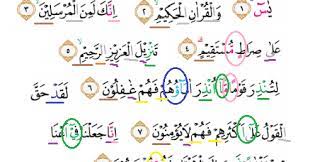 يسٓ ۝١ وَالْقُرْاٰنِ الْحَكِيْمِ ۝٢ اِنَّكَ لَمِنَ الْمُرْسَلِيْنَ ۝٣
عَلٰى صِرَاطٍ مُّسْتَقِيْمٍ ۝٤ تَنْزِيْلَ الْعَزِيْزِ الرَّحِيْمِ ۝٥
لِتُنْذِرَ قَوْمًا مَّآ اُنْذِرَ اٰبَاۤؤُهُمْ فَهُمْ غٰفِلُوْنَ ۝٦ لَقَدْ حَقَّ
الْقَوْلُ عَلٰٓى اَكْثَرِهِمْ فَهُمْ لَا يُؤْمِنُوْنَ ۝٧ اِنَّا جَعَلْنَا فِيْٓ